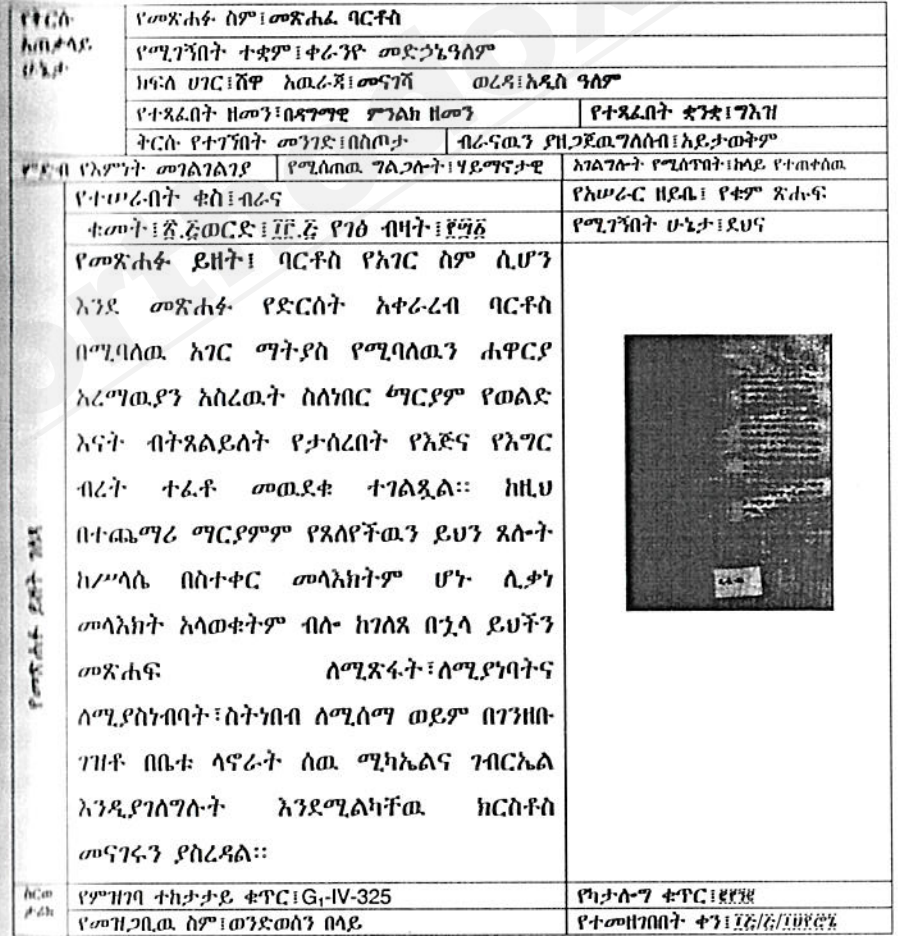 የቅርሱ አጠቃላይ ሁኔታ
የመጽሐፉ ስም፤መጽሐፈ ባርቶስ
የሚገኝበት ተቋም፤ቀራንዮ መድኃኔዓለም
ክፍለ ሀገር፤ሸዋ አዉራጃ፤መናገሻ ወረዳ፤አዲስ ዓለም
የተጻፈበት ዘመን፤በዳግማዊ ምንልክ ዘመን የተጻፈበት ቋንቋ፤ግእዝ
ቅርሱ የተገኘበት መንገድ፤በስጦታ ብራናዉን ያዘጋጀዉግለሰብ፤አይታወቅም
የእምነት መገልገልገያ የሚሰጠዉ ግልጋሎት፤ሃይማኖታዊ አገልግሎት የሚሰጥበት፤ከላይ የተጠቀሰዉ
የተሠራበት ቁስ፤ብራና የአሠራር ዘይቤ፤ የቁም ጽሑፍ
ቁመት፤ ወርድ፤ የገፅ ብዛት፤ የሚገኝበት ሁኔታ፤ደህና
የመጽሐፉ ይዘት
የመጽሐፉ ይዘት፤ ባርቶስ የአገር ስም ሲሆን
እንደ መጽሐፉ የድርሰት አቀራረብ ባርቶስ
በሚባለዉ አገር ማትያስ የሚባለዉን ሐዋርያ
አረማዉያን አስረዉት ስለነበር ማርያም የወልድ
እናት ብትጸልይለት የታሰረበት የእጅና የእግር
ብረት ተፈቶ መዉደቁ ተገልጿል። ከዚህ
በተጨማሪ ማርያምም የጸለየችዉን ይህን ጸሎት
ከሥላሴ በስተቀር መላእክትም ሆኑ ሊቃነ
መላእክት አላወቁትም ብሎ ከገለጸ በኋላ ይህችን
መጽሐፍ ለሚጽፋት፤ለሚያነባትና
ለሚያስነብባት፤ስትነበብ ለሚሰማ ወይም በገንዘቡ
ገዝቶ በቤቱ ላኖራት ሰዉ ሚካኤልና ገብርኤል
እንዲያገለግሉት እንደሚልካቸዉ ክርስቶስ
መናገሩን ያስረዳል።
የምዝገባ ተከታታይ ቁጥር፤G₁-IV-325 የካታሎግ ቁጥር፤
የመዝጋቢዉ ስም፤ወንድወሰን በላይ የተመዘገበበት ቀን፤